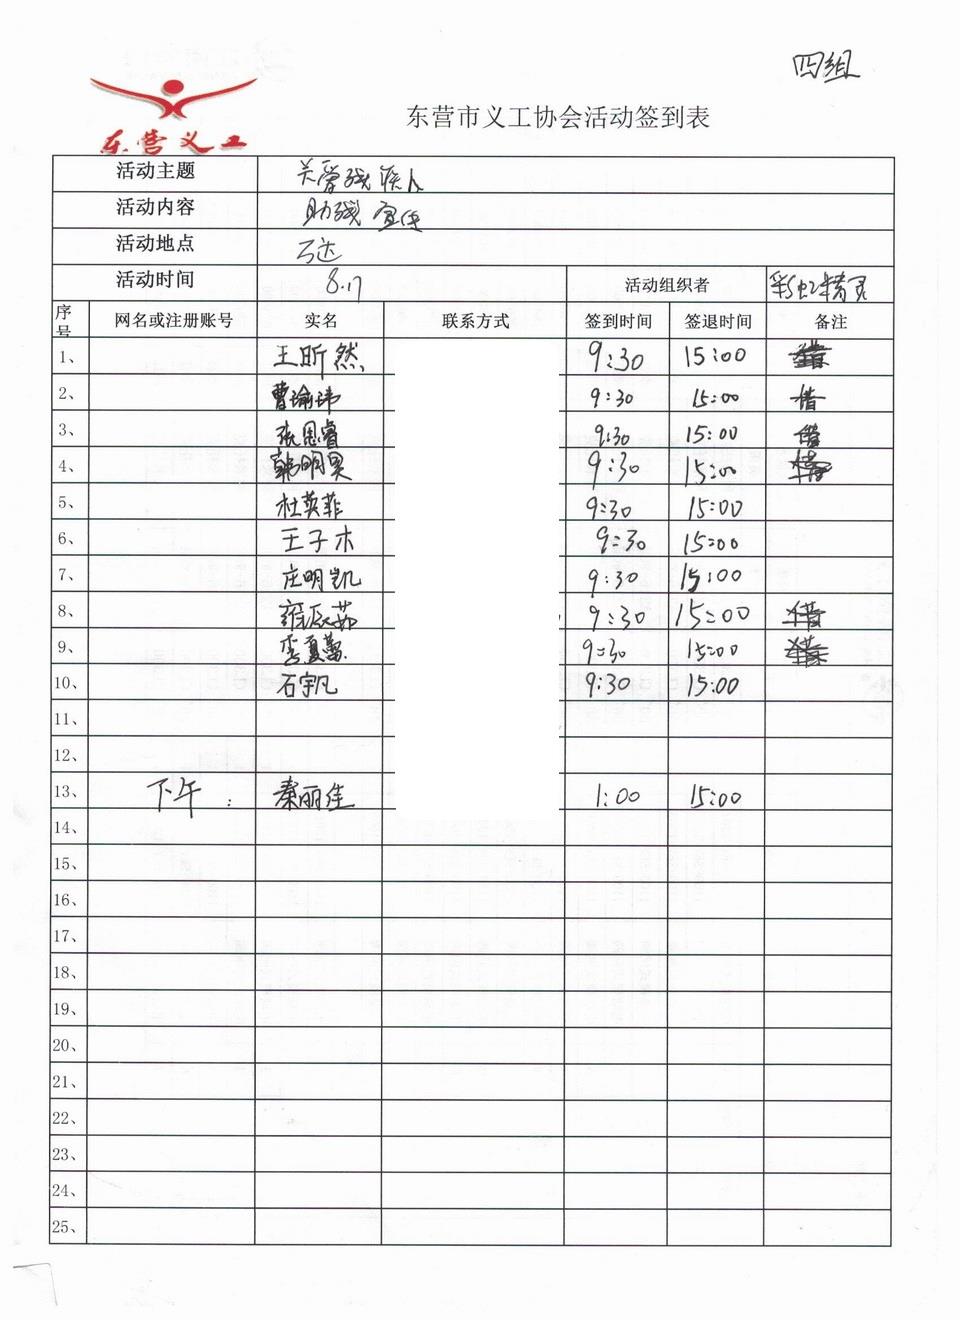 四组
东营义工
东营市义工协会活动签到表
活动主题 关爱残疾人
活动内容 助残宣传
活动地点 万达
活动时间 8.17 活动组织者 彩虹精灵
序号 网名或注册账号 实名 联系方式 签到时间 签退时间 备注
1、 王昕然 9:30 15:00
2、 曹瑜玮 9:30 15:00 借
3、 张恩睿 9:30 15:00 借
4、 韩明昊 9:30 15:00
5、 杜英菲 9:30 15:00
6、 王子木 9:30 15:00
7、 庄明凯 9:30 15:00
8、 9:30 15:00
9、 李夏蕊 9:30 15:00
10、 石宇凡 9:30 15:00
11、
12、
13、 下午: 秦丽佳 1:00 15:00
14、
15、
16、
17、
18、
19、
20、
21、
22、
23、
24、
25、